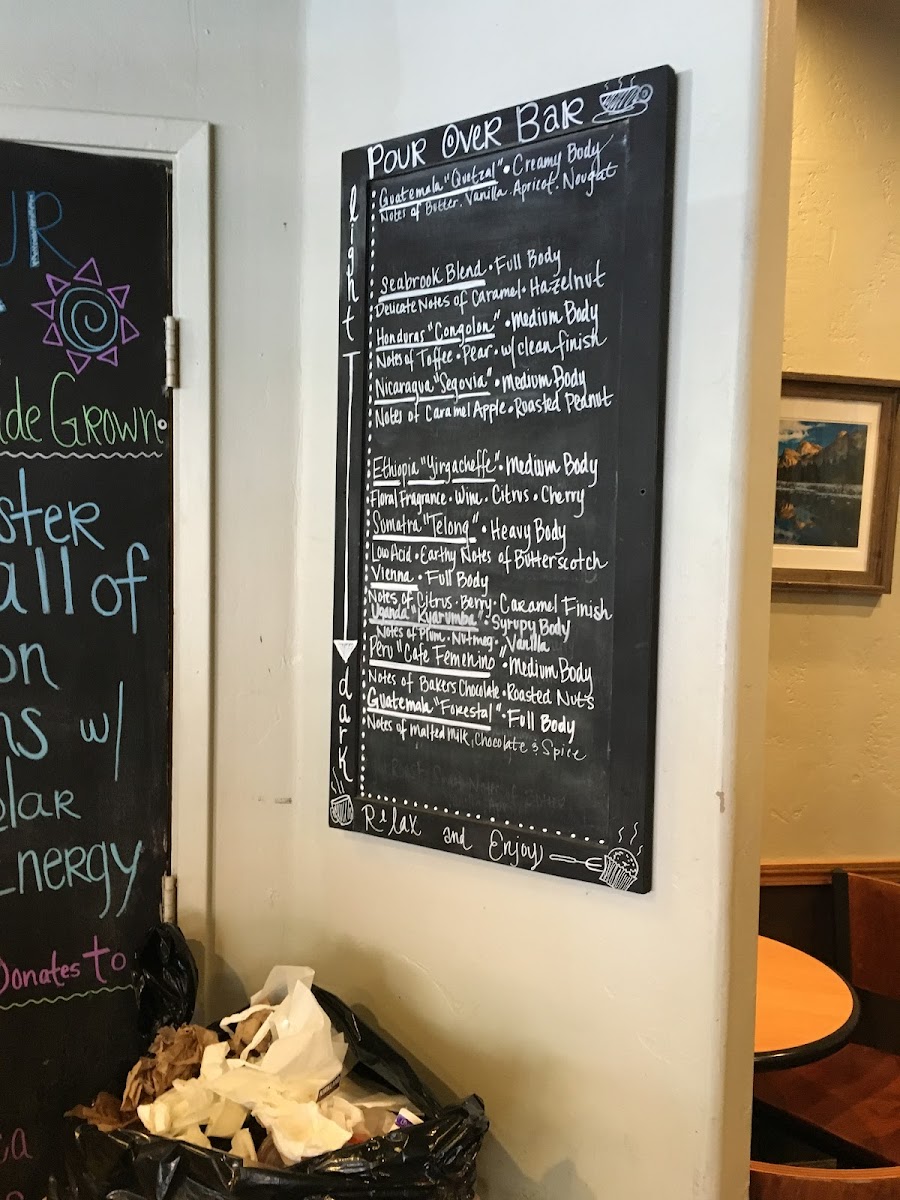 UR
de Grown
ster
all of
on
ns w/
elar
Energy
Donates to
ca
Pour Over Bar
light
dark
Guatemala "Quetzal" • Creamy Body
Notes of Butter. Vanilla. Apricot. Nougat
Seabrook Blend • Full Body
Delicate Notes of Caramel • Hazelnut
Honduras "Congolon" • Medium Body
Notes of Toffee • Pear • w/ clean finish
Nicaragua "Segovia" • Medium Body
Notes of Caramel Apple • Roasted Peanut
Ethiopia "Yirgacheffe" • Medium Body
Floral Fragrance • Wine • Citrus • Cherry
Sumatra "Telong" • Heavy Body
Low Acid • Earthy Notes of Butterscotch
Vienna • Full Body
Notes of Citrus • Berry • Caramel Finish
Uganda "Kyarumba" • Syrupy Body
Notes of Plum • Nutmeg • Vanilla
Peru "Cafe Femenino" • Medium Body
Notes of Bakers Chocolate • Roasted Nuts
Guatemala "Forestal" • Full Body
Notes of Malted Milk, Chocolate & Spice
Relax and Enjoy